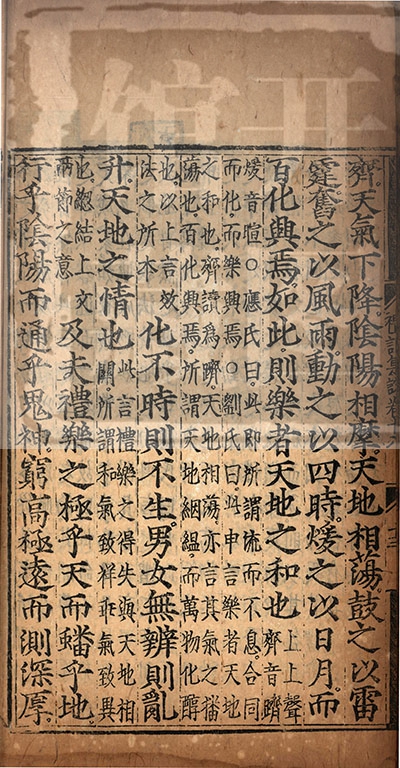 齊天氣下降陰陽相摩天地相蕩鼓之以雷
霆奮之以風雨動之以四時煖之以日月而
百化興焉如此則樂者天地之和也
上上聲
齊音躋
煖音暄○應氏曰此即所謂流而不息合同
而化而樂興焉○劉氏曰此申言樂者天地
之和也齊讀為躋天地相蕩亦言其氣之播
蕩也百化興焉所謂天地絪縕而萬物化醇
也以上言效
法之所本
化不時則不生男女無辨則亂
升天地之情也
此言禮樂之得失與天地相
關所謂和氣致祥乖氣致異
也總結上文
兩節之意
及夫禮樂之極乎天而蟠乎地
行乎陰陽而通乎鬼神窮高極遠而測深厚